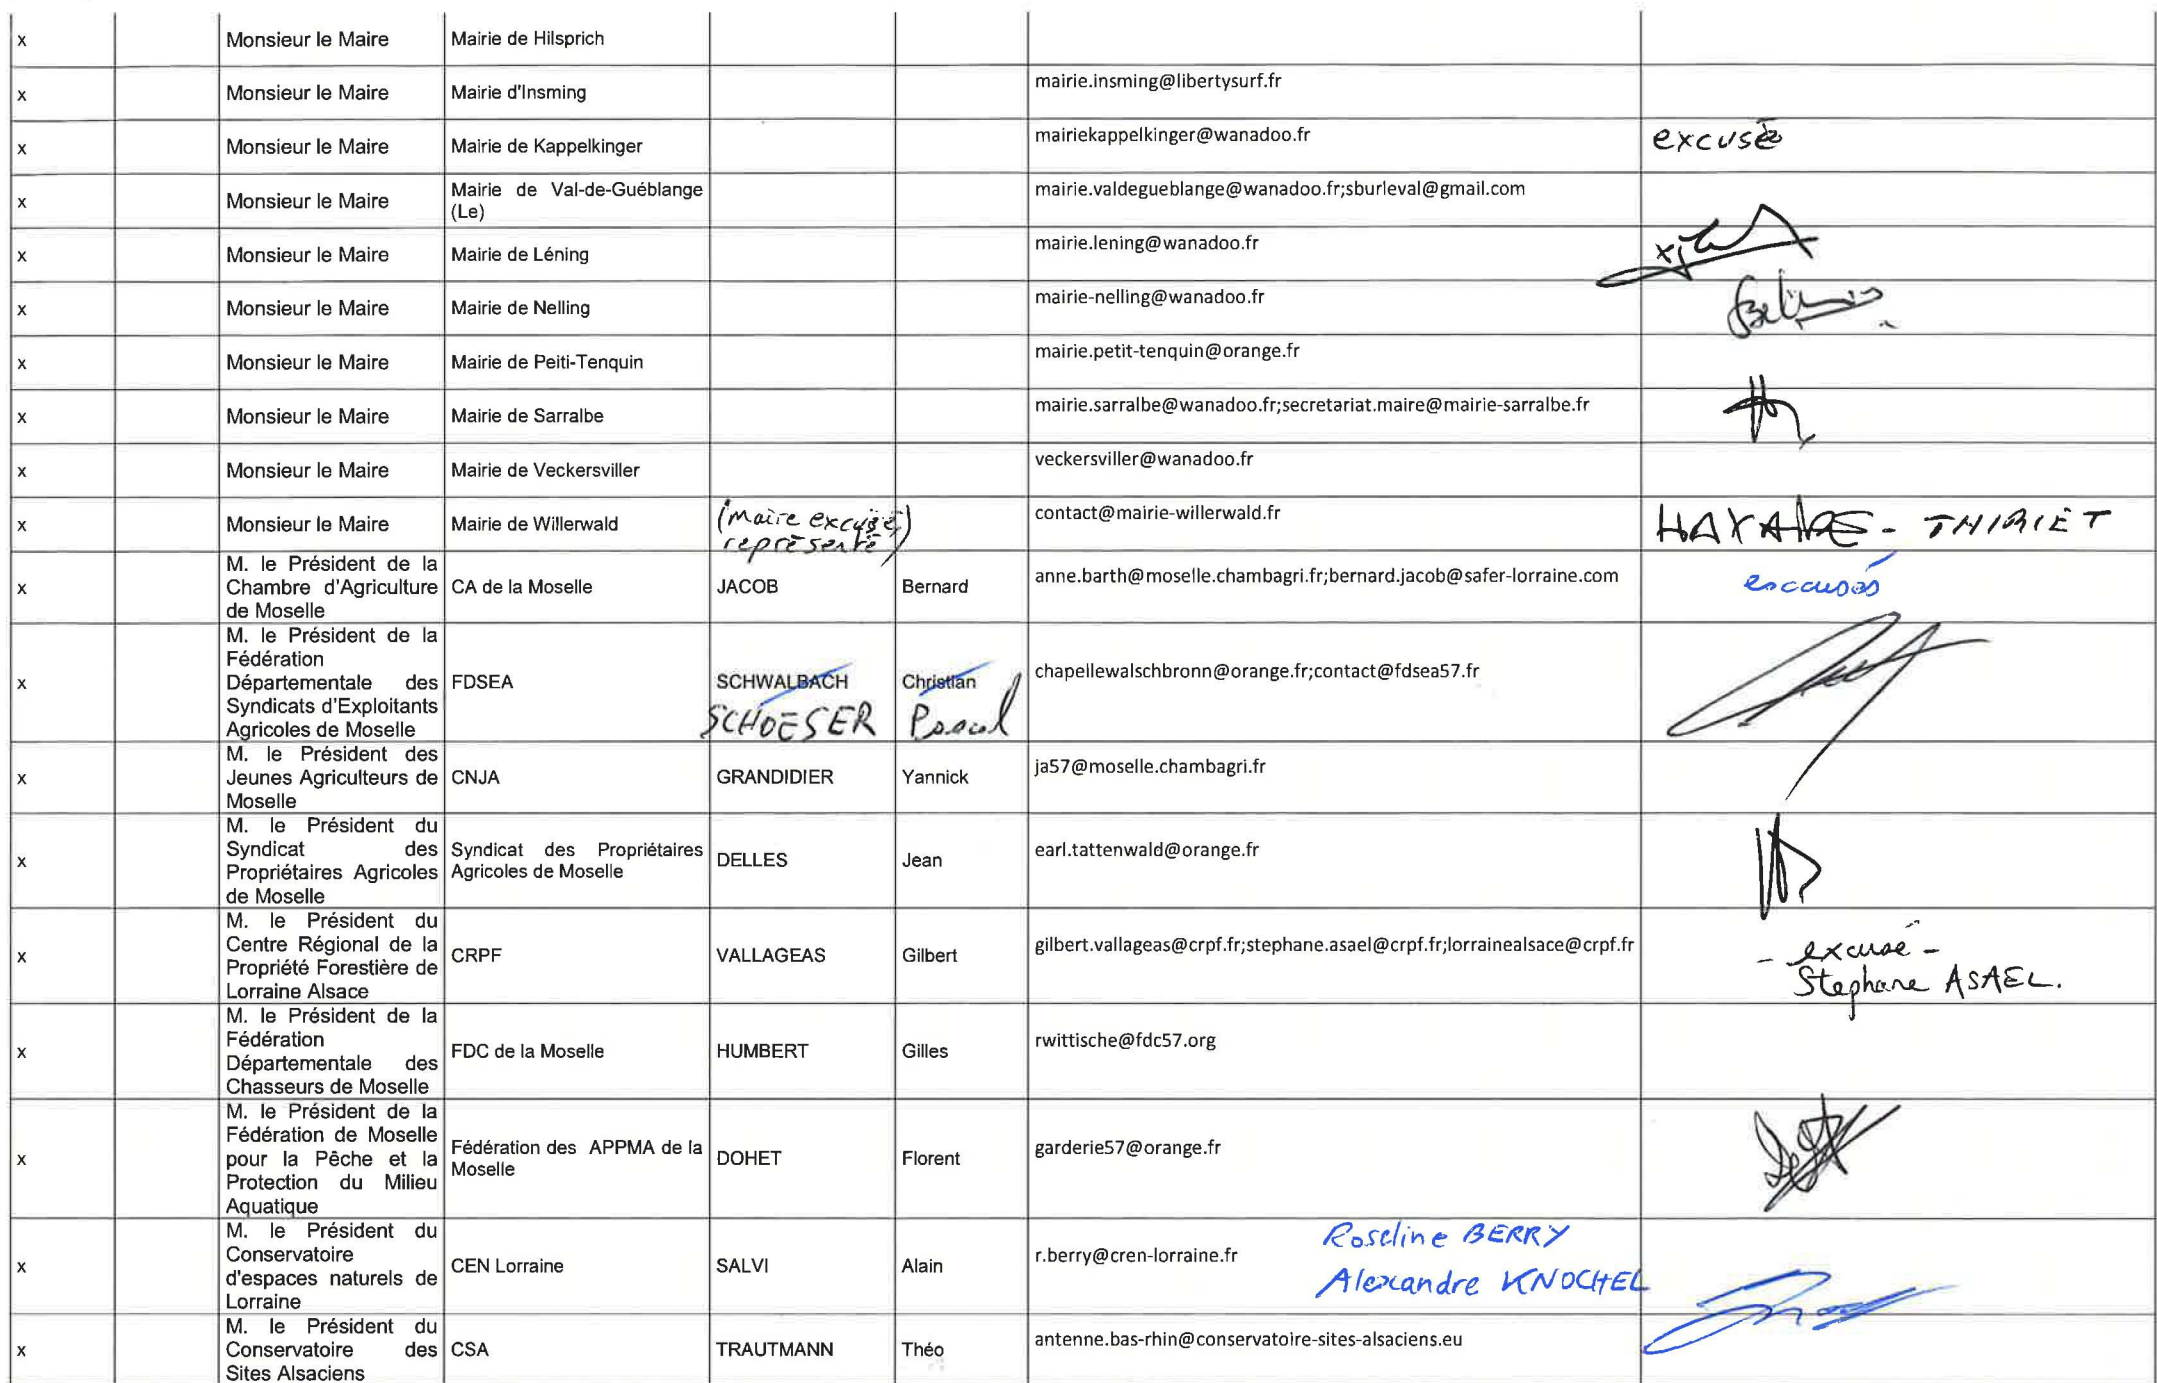 x Monsieur le Maire Mairie de Hilsprich
x Monsieur le Maire Mairie d'Insming mairie.insming@libertysurf.fr
x Monsieur le Maire Mairie de Kappelkinger mairiekappelkinger@wanadoo.fr excusé
x Monsieur le Maire Mairie de Val-de-Guéblange mairie.valdegueblange@wanadoo.fr;sburleval@gmail.com
(Le)
x Monsieur le Maire Mairie de Léning mairie.lening@wanadoo.fr
x Monsieur le Maire Mairie de Nelling mairie-nelling@wanadoo.fr
x Monsieur le Maire Mairie de Peiti-Tenquin mairie.petit-tenquin@orange.fr
x Monsieur le Maire Mairie de Sarralbe mairie.sarralbe@wanadoo.fr;secretariat.maire@mairie-sarralbe.fr
x Monsieur le Maire Mairie de Veckersviller veckersviller@wanadoo.fr
x Monsieur le Maire Mairie de Willerwald (maire excusé, contact@mairie-willerwald.fr THIRIET
représenté)
M. le Président de la
Chambre d'Agriculture
de Moselle
x CA de la Moselle JACOB Bernard anne.barth@moselle.chambagri.fr;bernard.jacob@safer-lorraine.com excusés
M. le Président de la
Fédération
Départementale des
Syndicats d'Exploitants
Agricoles de Moselle
x FDSEA SCHWALBACH Christian chapellewalschbronn@orange.fr;contact@fdsea57.fr
SCHOESER Pascal
M. le Président des
Jeunes Agriculteurs de
Moselle
x CNJA GRANDIDIER Yannick ja57@moselle.chambagri.fr
M. le Président du
Syndicat des
Propriétaires Agricoles
de Moselle
x Syndicat des Propriétaires
Agricoles de Moselle
DELLES Jean earl.tattenwald@orange.fr
M. le Président du
Centre Régional de la
Propriété Forestière de
Lorraine Alsace
x CRPF VALLAGEAS Gilbert gilbert.vallageas@crpf.fr;stephane.asael@crpf.fr;lorrainealsace@crpf.fr - excusé -
Stephane ASAEL.
M. le Président de la
Fédération
Départementale des
Chasseurs de Moselle
x FDC de la Moselle HUMBERT Gilles rwittische@fdc57.org
M. le Président de la
Fédération de Moselle
pour la Pêche et la
Protection du Milieu
Aquatique
x Fédération des APPMA de la
Moselle
DOHET Florent garderie57@orange.fr
M. le Président du
Conservatoire
d'espaces naturels de
Lorraine
x CEN Lorraine SALVI Alain r.berry@cren-lorraine.fr Roseline BERRY
Alexandre KNOCHEL
M. le Président du
Conservatoire des
Sites Alsaciens
x CSA TRAUTMANN Théo antenne.bas-rhin@conservatoire-sites-alsaciens.eu